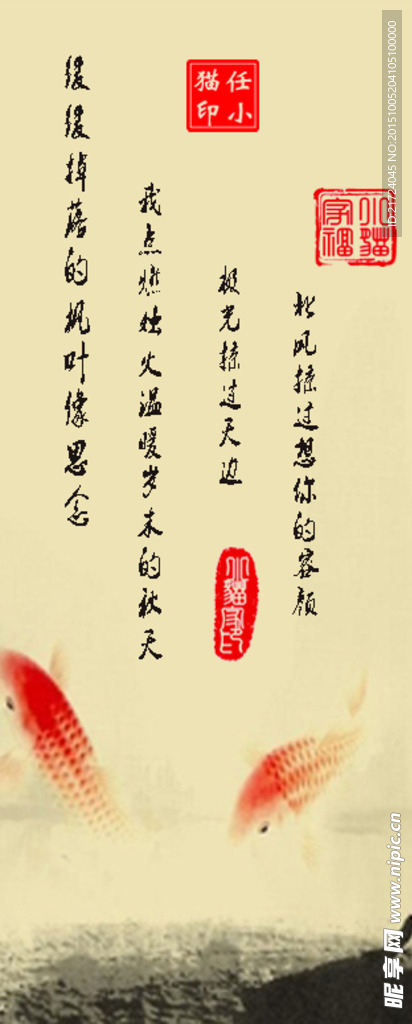 缓缓掉落的枫叶像思念
我点燃烛火温暖岁末的秋天
极光掠过天边
北风掠过想你的容颜
任小
猫印
ID:21724045 NO:20151005204105100000
昵享网 www.nipic.cn